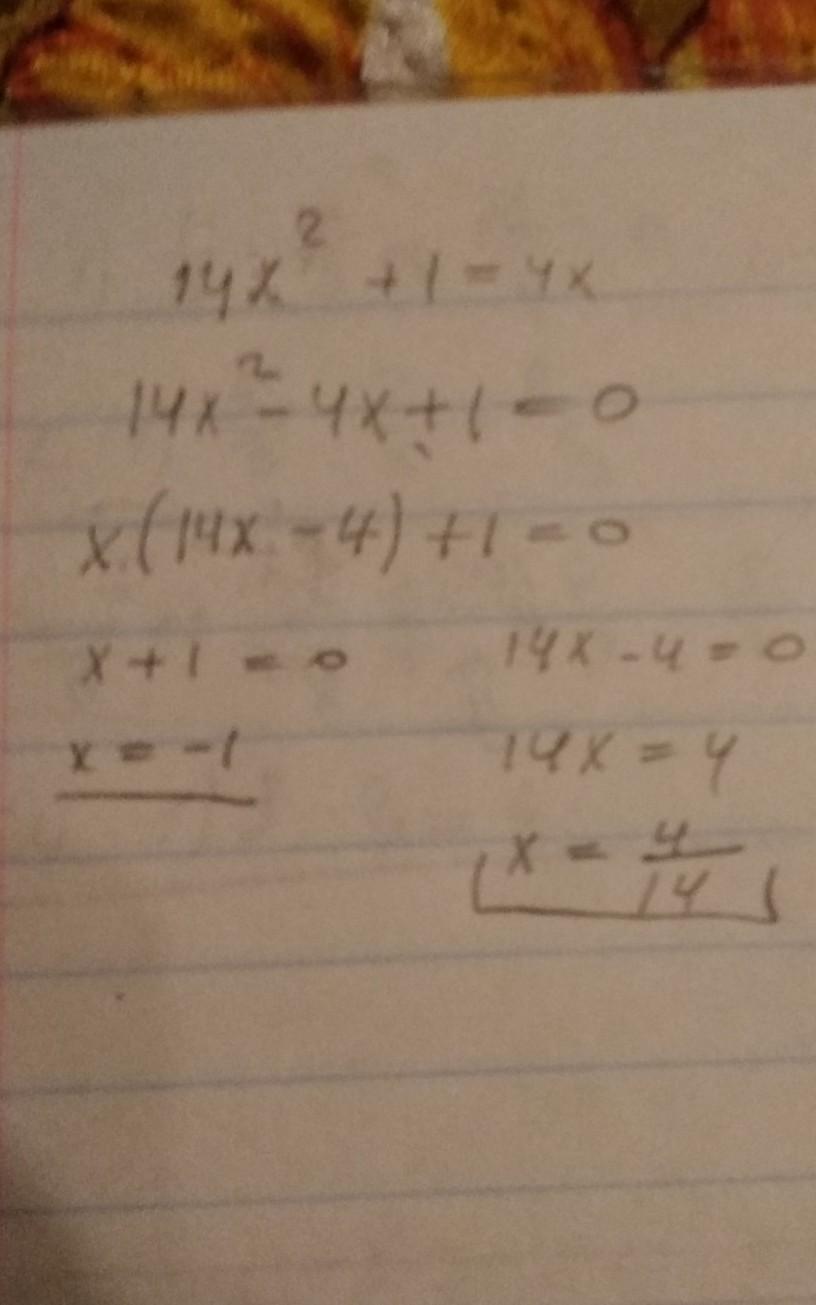 14x² + 1 = 4x
14x² - 4x + 1 = 0
x(14x - 4) + 1 = 0
x + 1 = 0 14x - 4 = 0
x = -1 14x = 4
x = 4/14